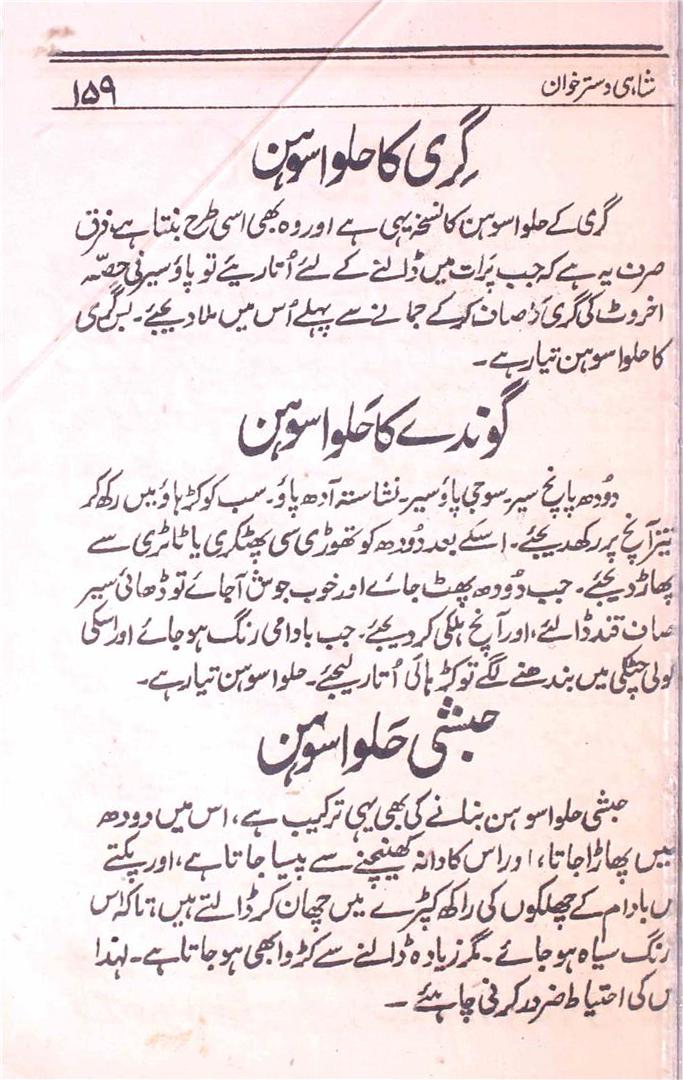 شاہی دسترخوان
۱۵۹
گری کا حلوا سوہن
گری کے حلوا سوہن کا نسخہ یہی ہے اور وہ بھی اسی طرح بنتا ہے، فرق
صرف یہ ہے کہ جب پَرات میں ڈالنے کے لئے اُتاریئے تو پاؤ سیر فی حصّہ
اخروٹ کی گری صاف کر کے جمانے سے پہلے اُس میں ملا دیجئے۔ بس گری
کا حلوا سوہن تیار ہے۔
گوندے کا حَلوا سوہن
دُودھ پانچ سیر۔ سوجی پاؤ سیر۔ نشاستہ آدھ پاؤ۔ سب کو کڑہاؤ میں رکھ کر
تیز آنچ پر رکھ دیجئے۔ اسکے بعد دُودھ کو تھوڑی سی پھٹکری یا ٹاٹری سے
پھاڑ دیجئے۔ جب دُودھ پھٹ جائے اور خوب جوش آجائے تو ڈھائی سیر
صاف قند ڈالئے، اور آنچ ہلکی کر دیجئے۔ جب بادامی رنگ ہو جائے اور اسکی
گولی چٹکی میں بندھنے لگے تو کڑہائی اُتار لیجئے۔ حلوا سوہن تیار ہے۔
حبشی حَلوا سوہن
حبشی حلوا سوہن بنانے کی بھی یہی ترکیب ہے، اس میں دودھ
نہیں پھاڑا جاتا، اور اس کا دانہ کھینچنے سے پیسا جاتا ہے، اور پکتے
میں بادام کے چھلکوں کی راکھ کپڑے میں چھان کر ڈالتے ہیں؛ تاکہ اس
رنگ سیاہ ہو جائے۔ مگر زیادہ ڈالنے سے کڑوا بھی ہو جاتا ہے۔ لہٰذا
اس کی احتیاط ضرور کرنی چاہئے۔